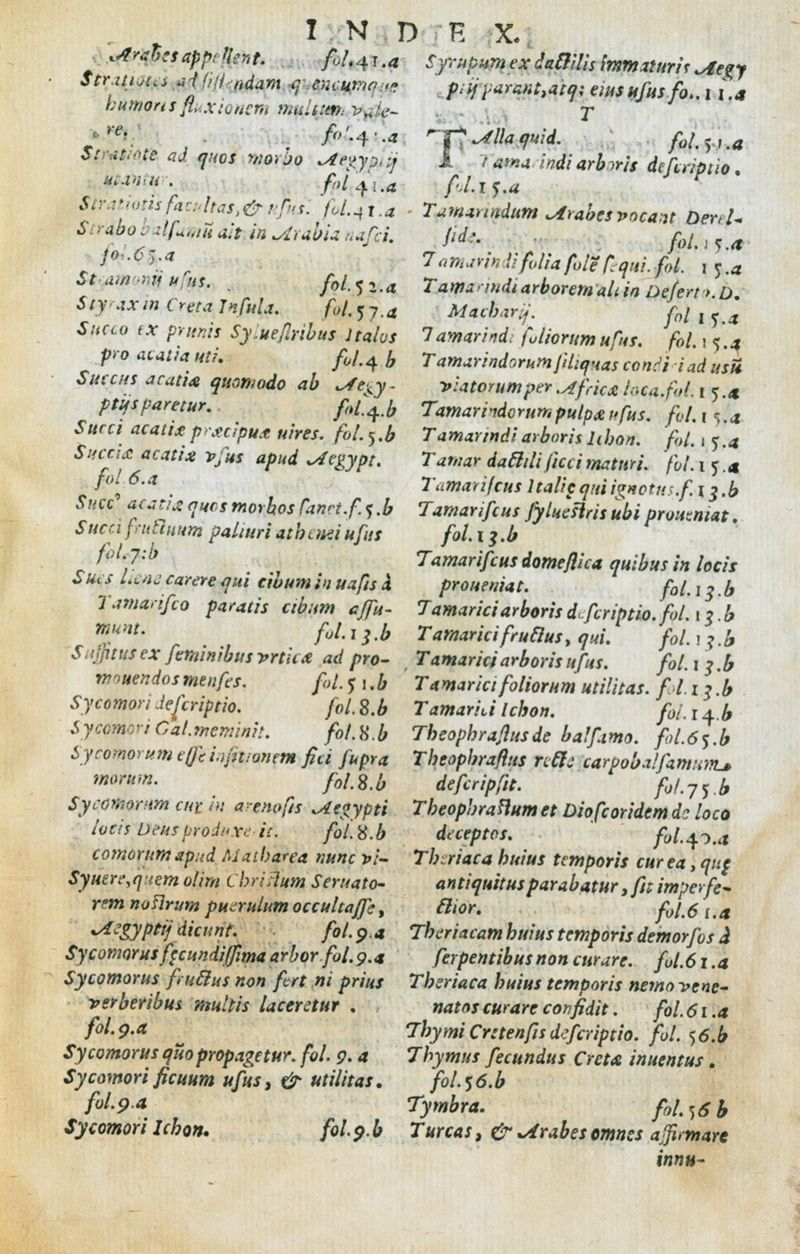 INDEX.
Arabes appellent. fol.41.a
Stratiotes ad sistendam quencumque
humoris fluxionem multum vale-
re. fol.41.a
Stratiote ad quos morbo Aegyptij
utantur. fol 41.a
Stratiotis facultas, & vsus. fol.41.a
Strabo balsamũ ait in Arabia nasci.
fol.65.a
Stramonij usus. fol.52.a
Styrax in Creta Insula. fol.57.a
Succo ex prunis Syluestribus Italos
pro acatia uti. fol.4 b
Succus acatiæ quomodo ab Aegy-
ptijs paretur. fol.4.b
Succi acatiæ præcipuæ uires. fol.5.b
Succiæ acatiæ vsus apud Aegypt.
fol 6.a
Succ' acatiæ quos morbos sanet.f.5.b
Succi fructuum paliuri athenei usus
fol.7:b
Sues liene carere qui cibum in uasis à
Tamarisco paratis cibum assu-
munt. fol.13.b
Suffitus ex seminibus vrticæ ad pro-
mouendos menses. fol.51.b
Sycomori descriptio. fol.8.b
Sycomori Gal.meminit. fol.8.b
Sycomorum esse insitionem fici supra
morum. fol.8.b
Sycomorum cur in arenosis Aegypti
locis Deus produxerit. fol.8.b
comorum apud Matharea nunc vi-
Syuere,quem olim Christum Seruato-
rem nostrum puerulum occultasse,
Aegyptij dicunt. fol.9.a
Sycomorus fęcundissima arbor.fol.9.a
Sycomorus fructus non fert ni prius
verberibus multis laceretur .
fol.9.a
Sycomorus quõ propagetur. fol. 9. a
Sycomori ficuum usus, & utilitas.
fol.9.a
Sycomori Ichon. fol.9.b
Syrupum ex dactilis immaturis Aegy
ptij parant,atq; eius usus fo.. 11.a
T
TAlla quid. fol.51.a
Tamarindi arboris descriptio.
fol.15.a
Tamarindum Arabes vocant Derel-
side. fol.15.a
Tamarindi folia solẽ sequi.fol. 15.a
Tamarindi arborem ali in Deserto.D.
Macharij. fol 15.a
Tamarindi foliorum usus. fol.15.a
Tamarindorum siliquas condi i ad usũ
viatorum per Africæ loca.fol.15.a
Tamarindorum pulpæ usus. fol.15.a
Tamarindi arboris Ichon. fol.15.a
Tamar dactili sicci maturi. fol.15.a
Tamariscus Italię qui ignotus.f.13.b
Tamariscus syluestris ubi proueniat.
fol.13.b
Tamariscus domestica quibus in locis
proueniat. fol.13.b
Tamarici arboris descriptio.fol.13.b
Tamarici fructus, qui. fol.13.b
Tamarici arboris usus. fol.13.b
Tamarici foliorum utilitas. fol.13.b
Tamarici Ichon. fol.14.b
Theophrastus de balsamo. fol.65.b
Theophrastus recte carpobalsamum
descripsit. fol.75.b
Theophrastum et Dioscoridem de loco
deceptos. fol.40.a
Theriaca huius temporis cur ea, quę
antiquitus parabatur, sit imperfe-
ctior. fol.61.a
Theriacam huius temporis demorsos à
serpentibus non curare. fol.61.a
Theriaca huius temporis nemo vene-
natos curare confidit. fol.61.a
Thymi Cretensis descriptio. fol. 56.b
Thymus secundus Cretæ inuentus.
fol.56.b
Tymbra. fol.56 b
Turcas, & Arabes omnes affirmare
innu-